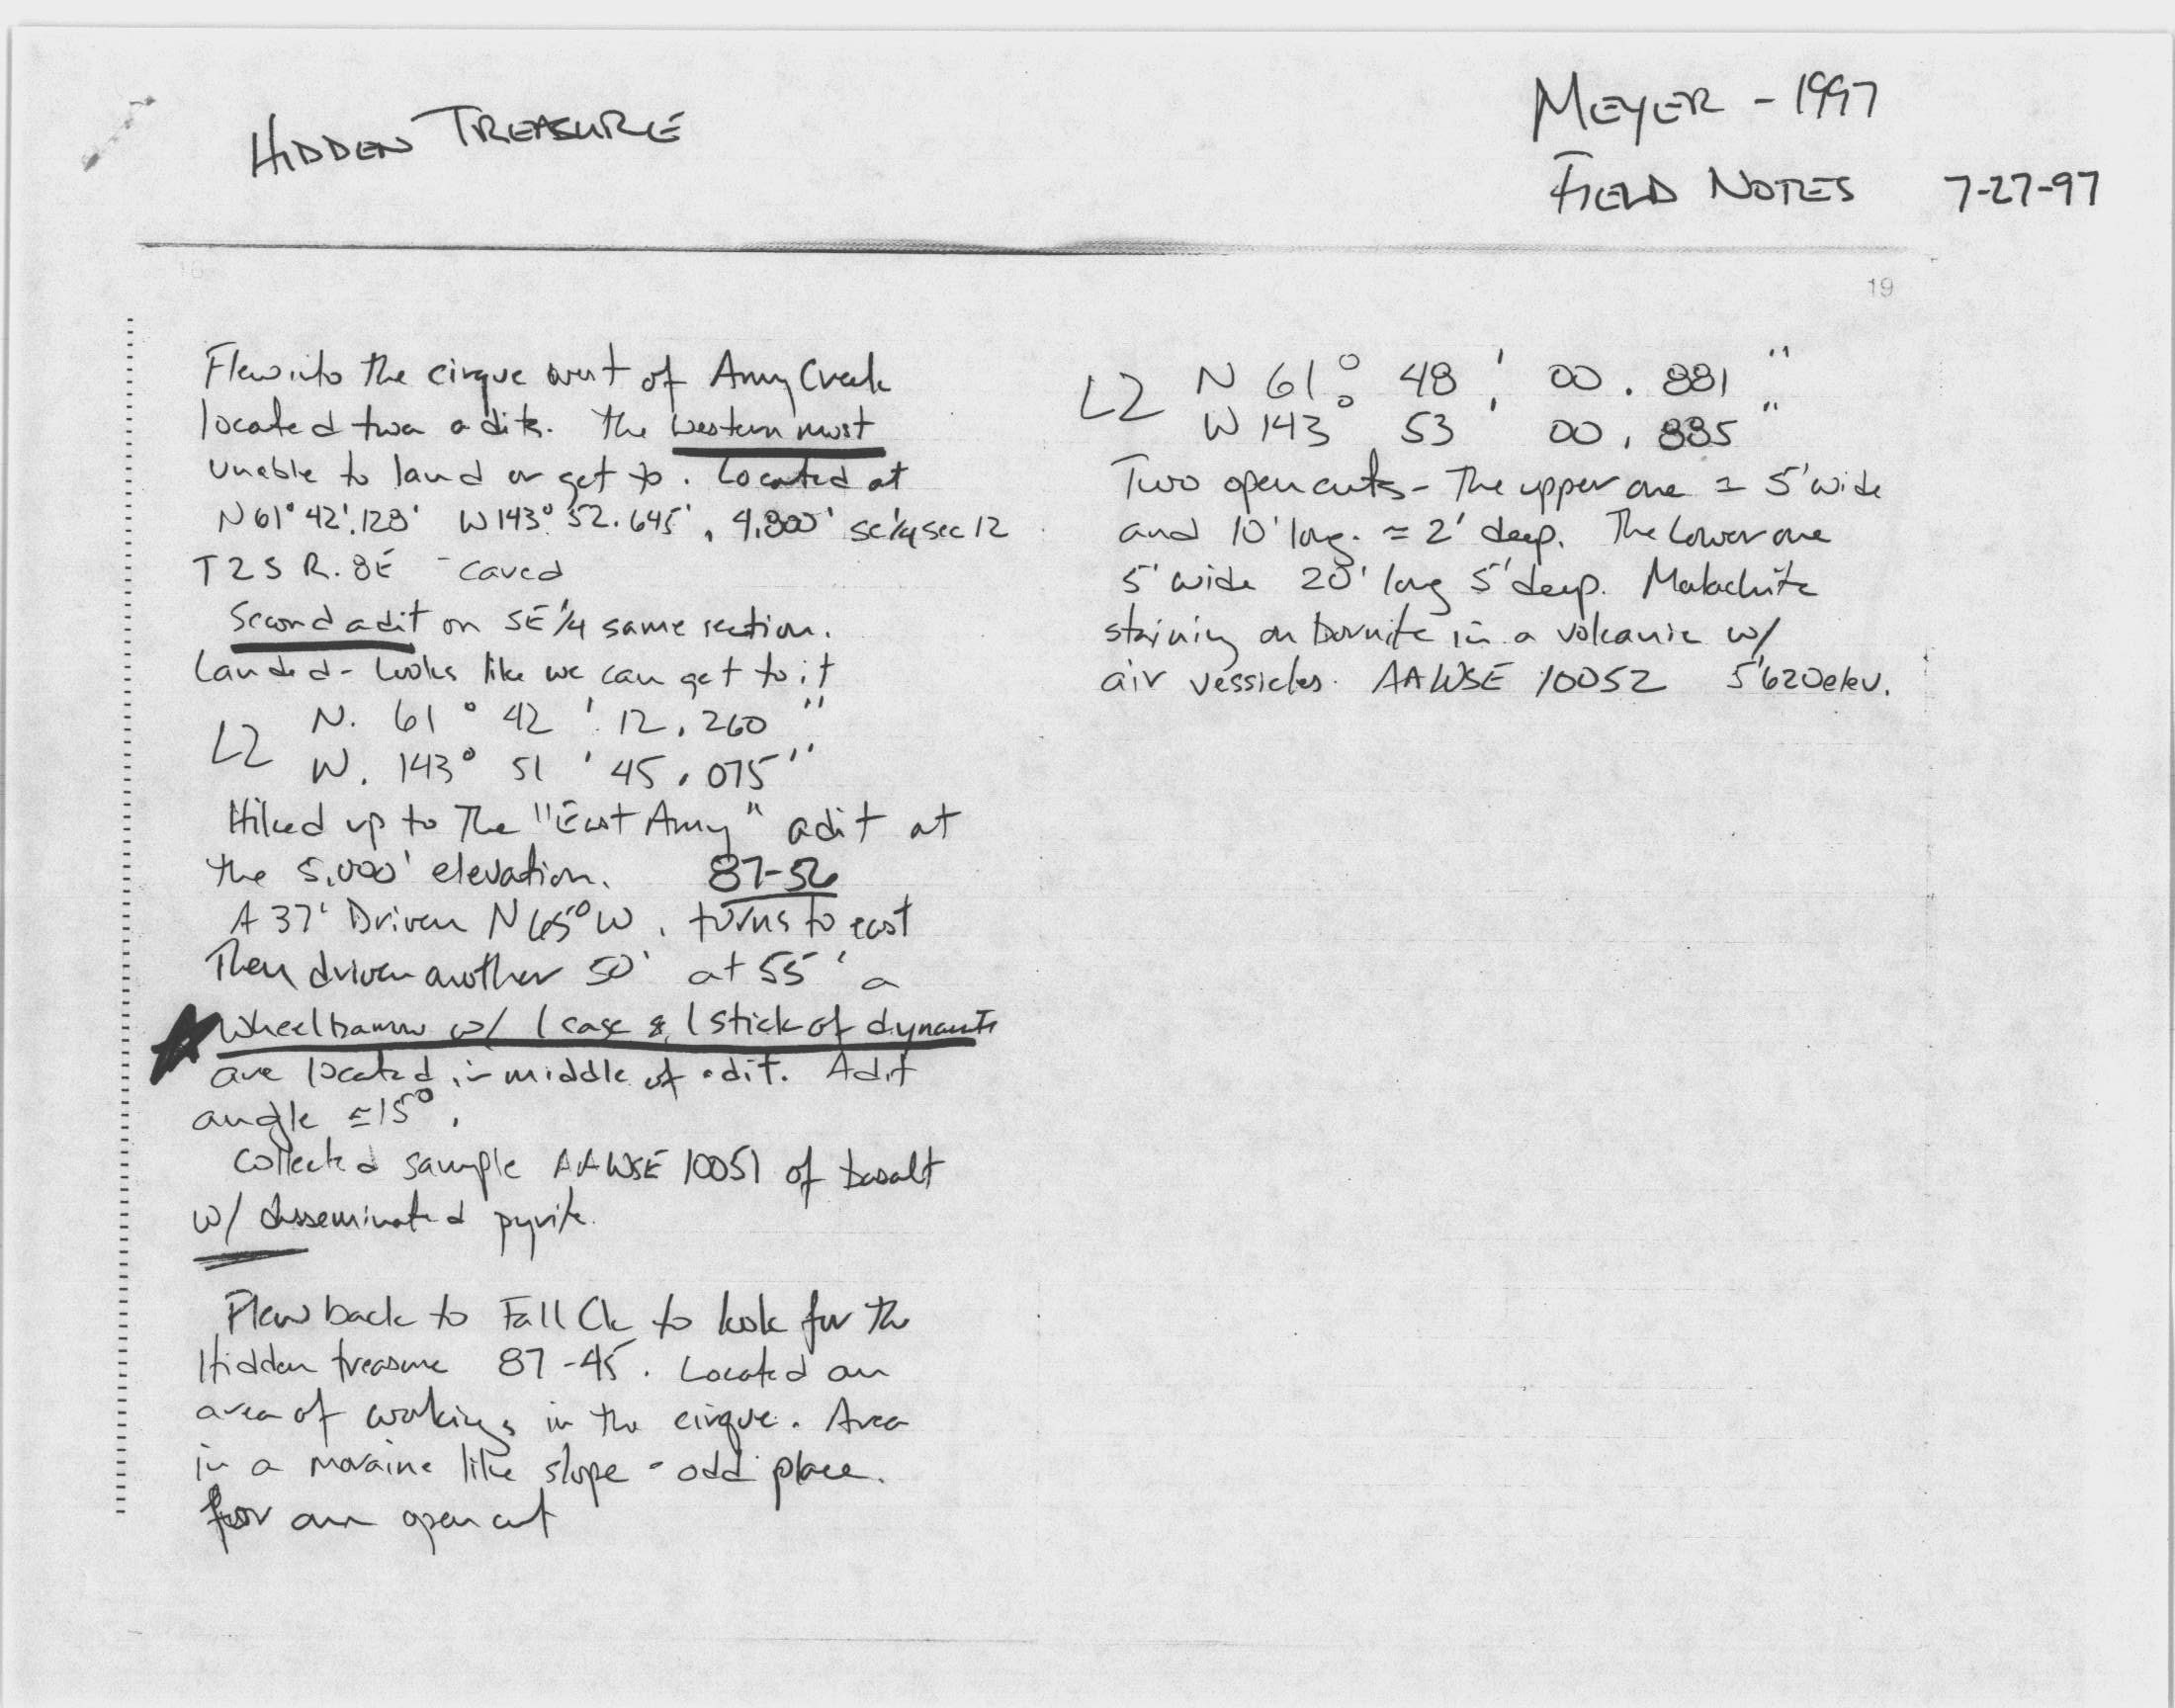 HIDDEN TREASURE
MEYER - 1997
FIELD NOTES 7-27-97
19
Flew into the cirque west of Amy Creek
located two adits. The western most
unable to land or get to. Located at
N61° 42'.128' W143° 52.645', 4,800' SE 1/4 sec 12
T2S R.8E - caved
Second adit on SE 1/4 same section.
Landed - looks like we can get to it
LZ N. 61° 42' 12.260"
W. 143° 51' 45.075"
Hiked up to The "East Amy" adit at
the 5,000' elevation. 87-56
A 37' Driven N65°W, turns to east
Then driven another 50' at 55' a
wheelbarrow w/ 1 case & 1 stick of dynamite
are located in middle of adit. Adit
angle ≅15°.
Collected sample AAWSE 10051 of basalt
w/ disseminated pyrite.
Flew back to Fall Ck to look for the
Hidden treasure 87-45. Located an
area of workings in the cirque. Area
in a moraine like slope - odd place.
for an open cut
LZ N 61° 48' 00.881"
W 143° 53' 00.885"
Two open cuts - The upper one ≅ 5' wide
and 10' long. ≅ 2' deep. The lower one
5' wide 20' long 5' deep. Malachite
staining on bornite in a volcanic w/
air vessicles. AAWSE 10052 5'620 elev.